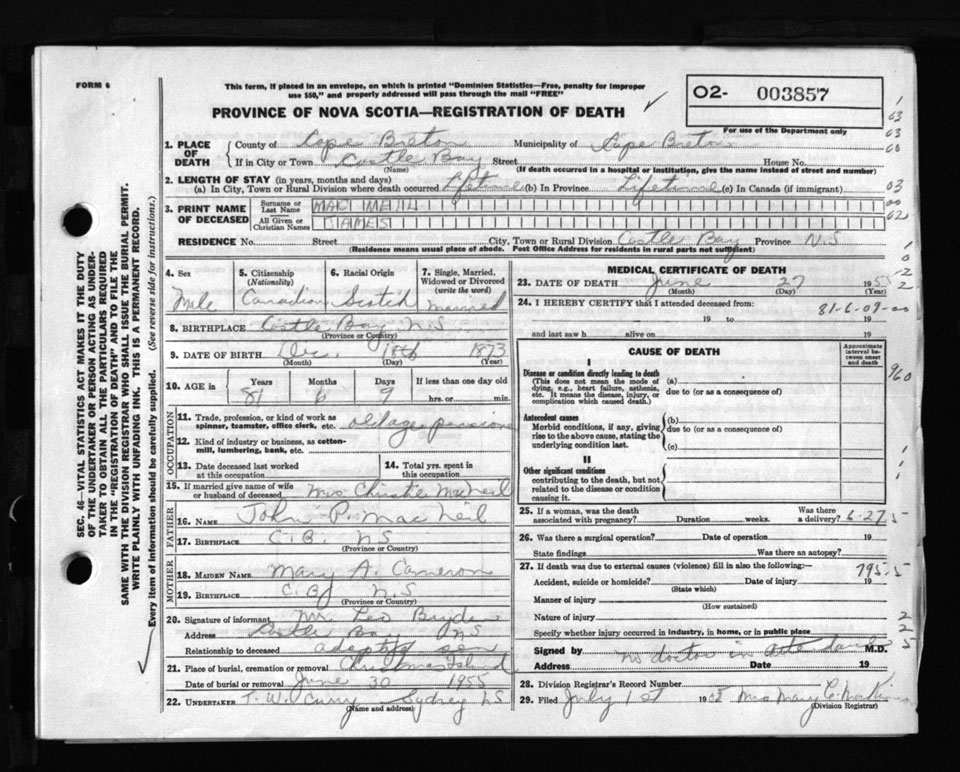 FORM 6
This form, if placed in an envelope, on which is printed "Dominion Statistics—Free, penalty for improper
use $50," and properly addressed will pass through the mail "FREE"
PROVINCE OF NOVA SCOTIA—REGISTRATION OF DEATH
O2- 003857
For use of the Department only
SEC. 46—VITAL STATISTICS ACT MAKES IT THE DUTY
OF THE UNDERTAKER OR PERSON ACTING AS UNDER-
TAKER TO OBTAIN ALL THE PARTICULARS REQUIRED
IN THE "REGISTRATION OF DEATH" AND TO FILE THE
SAME WITH THE DIVISION REGISTRAR WHO SHALL ISSUE THE BURIAL PERMIT.
WRITE PLAINLY WITH UNFADING INK. THIS IS A PERMANENT RECORD.
Every item of information should be carefully supplied. (See reverse side for instructions.)
1. PLACE OF DEATH
County of Cape Breton Municipality of Cape Breton
If in City or Town Castle Bay Street House No.
(Name) (If death occurred in a hospital or institution, give the name instead of street and number)
2. LENGTH OF STAY (in years, months and days)
(a) In City, Town or Rural Division where death occurred Lifetime (b) In Province Lifetime (c) In Canada (if immigrant)
3. PRINT NAME OF DECEASED
Surname or Last Name MAC NEIL
All Given or Christian Names JAMES
RESIDENCE No. Street City, Town or Rural Division Castle Bay Province N.S
(Residence means usual place of abode. Post Office Address for residents in rural parts not sufficient)
4. Sex Male
5. Citizenship (Nationality) Canadian
6. Racial Origin Scotch
7. Single, Married, Widowed or Divorced (write the word) married
8. BIRTHPLACE Castle Bay N.S
(Province or Country)
9. DATE OF BIRTH Dec. 18th 1873
(Month) (Day) (Year)
10. AGE in Years 81 Months 6 Days 9 If less than one day old hrs. or min.
OCCUPATION
11. Trade, profession, or kind of work as spinner, teamster, office clerk, etc. old age pension
12. Kind of industry or business, as cotton-mill, lumbering, bank, etc.
13. Date deceased last worked at this occupation
14. Total yrs. spent in this occupation
15. If married give name of wife or husband of deceased Mrs Christie MacNeil
FATHER
16. NAME John P. MacNeil
17. BIRTHPLACE C.B. NS
(Province or Country)
MOTHER
18. MAIDEN NAME Mary A. Cameron
19. BIRTHPLACE C.B. N.S
(Province or Country)
20. Signature of informant Mr. Leo Bryden
Address Castle Bay NS
Relationship to deceased adopted son
21. Place of burial, cremation or removal Christmas Island
Date of burial or removal June 30 1955
22. UNDERTAKER T. W. Curry Sydney NS
(Name and address)
MEDICAL CERTIFICATE OF DEATH
23. DATE OF DEATH June 27 1955
(Month) (Day) (Year)
24. I HEREBY CERTIFY that I attended deceased from:
81-6-09-00
19 to 19
and last saw h alive on 19
CAUSE OF DEATH
Approximate interval between onset and death
I
Disease or condition directly leading to death (a)
(This does not mean the mode of dying, e.g., heart failure, asthenia, etc. It means the disease, injury, or complication which caused death.)
due to (or as a consequence of)
Antecedent causes (b)
Morbid conditions, if any, giving rise to the above cause, stating the underlying condition last.
due to (or as a consequence of)
(c)
II
Other significant conditions
contributing to the death, but not related to the disease or condition causing it.
25. If a woman, was the death associated with pregnancy? Duration weeks. Was there a delivery? 6-27 5
26. Was there a surgical operation? Date of operation 19
State findings Was there an autopsy?
27. If death was due to external causes (violence) fill in also the following:—
795.5
Accident, suicide or homicide? Date of injury 19
(State which)
Manner of injury
(How sustained)
Nature of injury
Specify whether injury occurred in industry, in home, or in public place
Signed by no doctor in attendance M.D.
Address Date 19
28. Division Registrar's Record Number
29. Filed July 1st 1955 Mrs Mary C.
(Division Registrar)